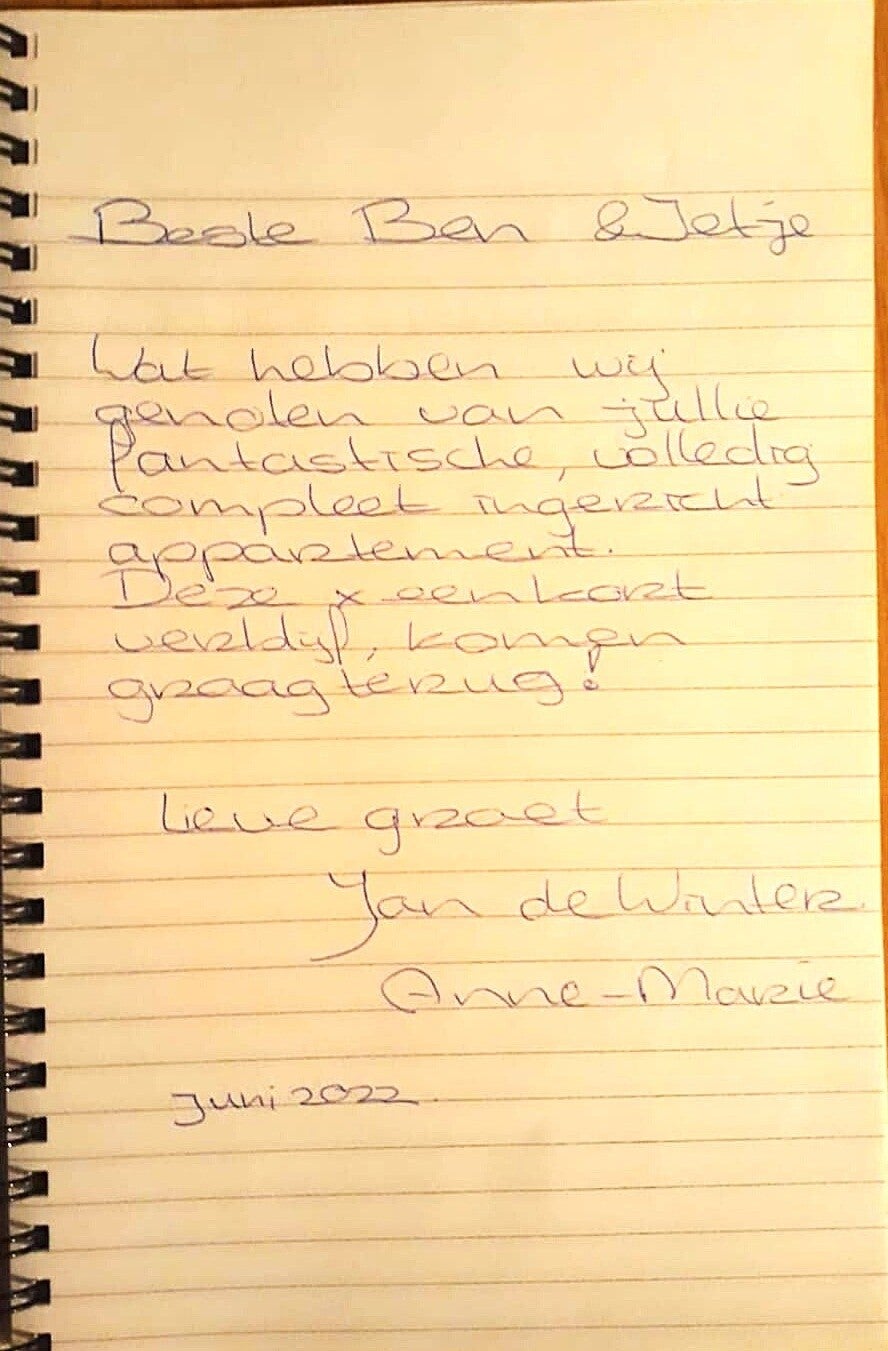 Beste Ben & Jetje
Wat hebben wij
genoten van jullie
fantastische, volledig
compleet ingericht
appartement.
Deze x een kort
verblijf, komen
graag terug!
Lieve groet
Jan de Winter.
Anne-Marie
Juni 2022.